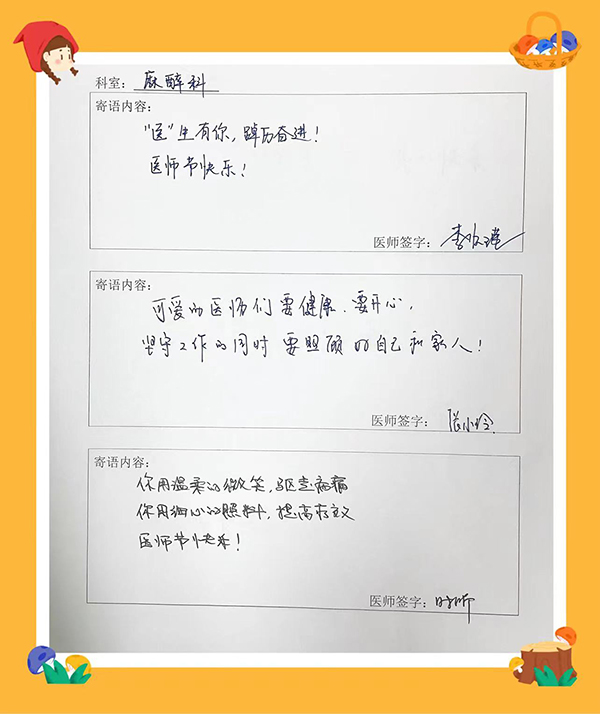 科室：麻醉科
寄语内容：
"医"生有你，踔厉奋进！
医师节快乐！
医师签字：李
寄语内容：
可爱的医师们要健康、要开心，
坚守工作的同时要照顾好自己和家人！
医师签字：张小玲
寄语内容：
你用温柔的微笑，驱走病痛
你用细心的照料，提高存义
医师节快乐！
医师签字：